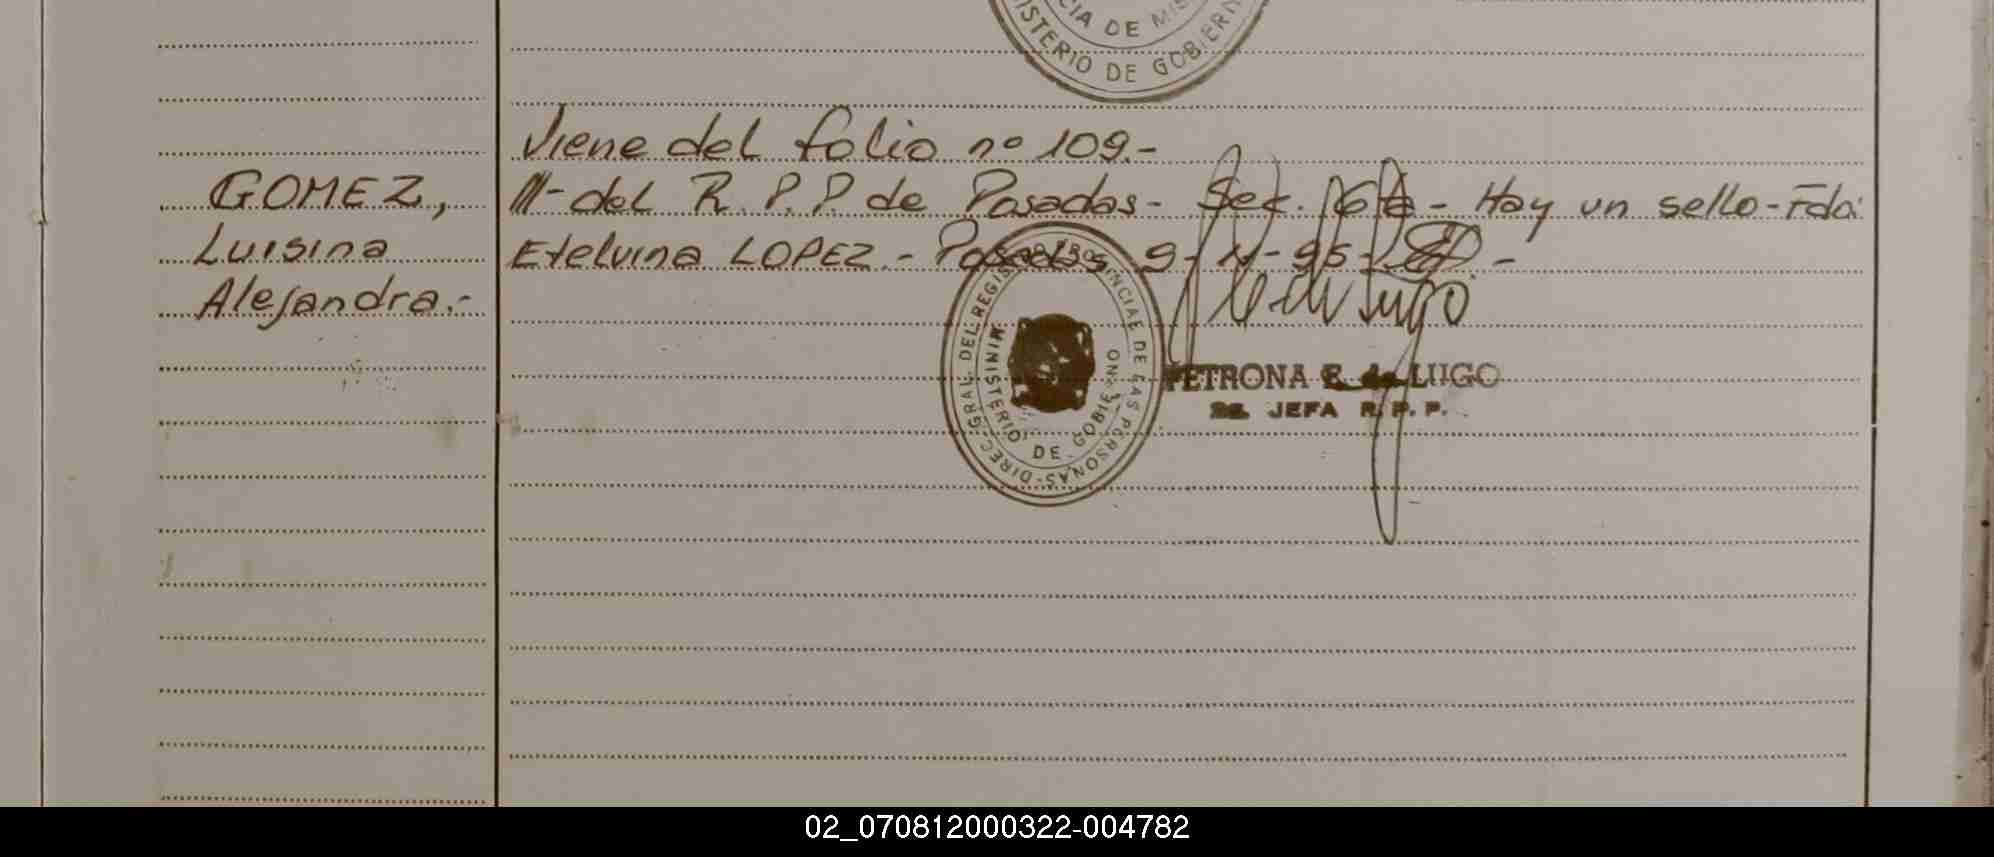 CIA DE MIS
ISTERIO DE GOBIERN
Viene del folio nº 109.-
GOMEZ,
Luisina
Alejandra.-
///-del R.P.P. de Posadas- Sec. 6ta- Hay un sello-Fdo:
Etelvina LOPEZ.- Posadas 9-11-95-
DIREC. GRAL. DEL REGISTRO PROVINCIAL DE LAS PERSONAS-
MINISTERIO DE GOBIERNO
PETRONA E. de LUGO
JEFA R.P.P.
02_070812000322-004782